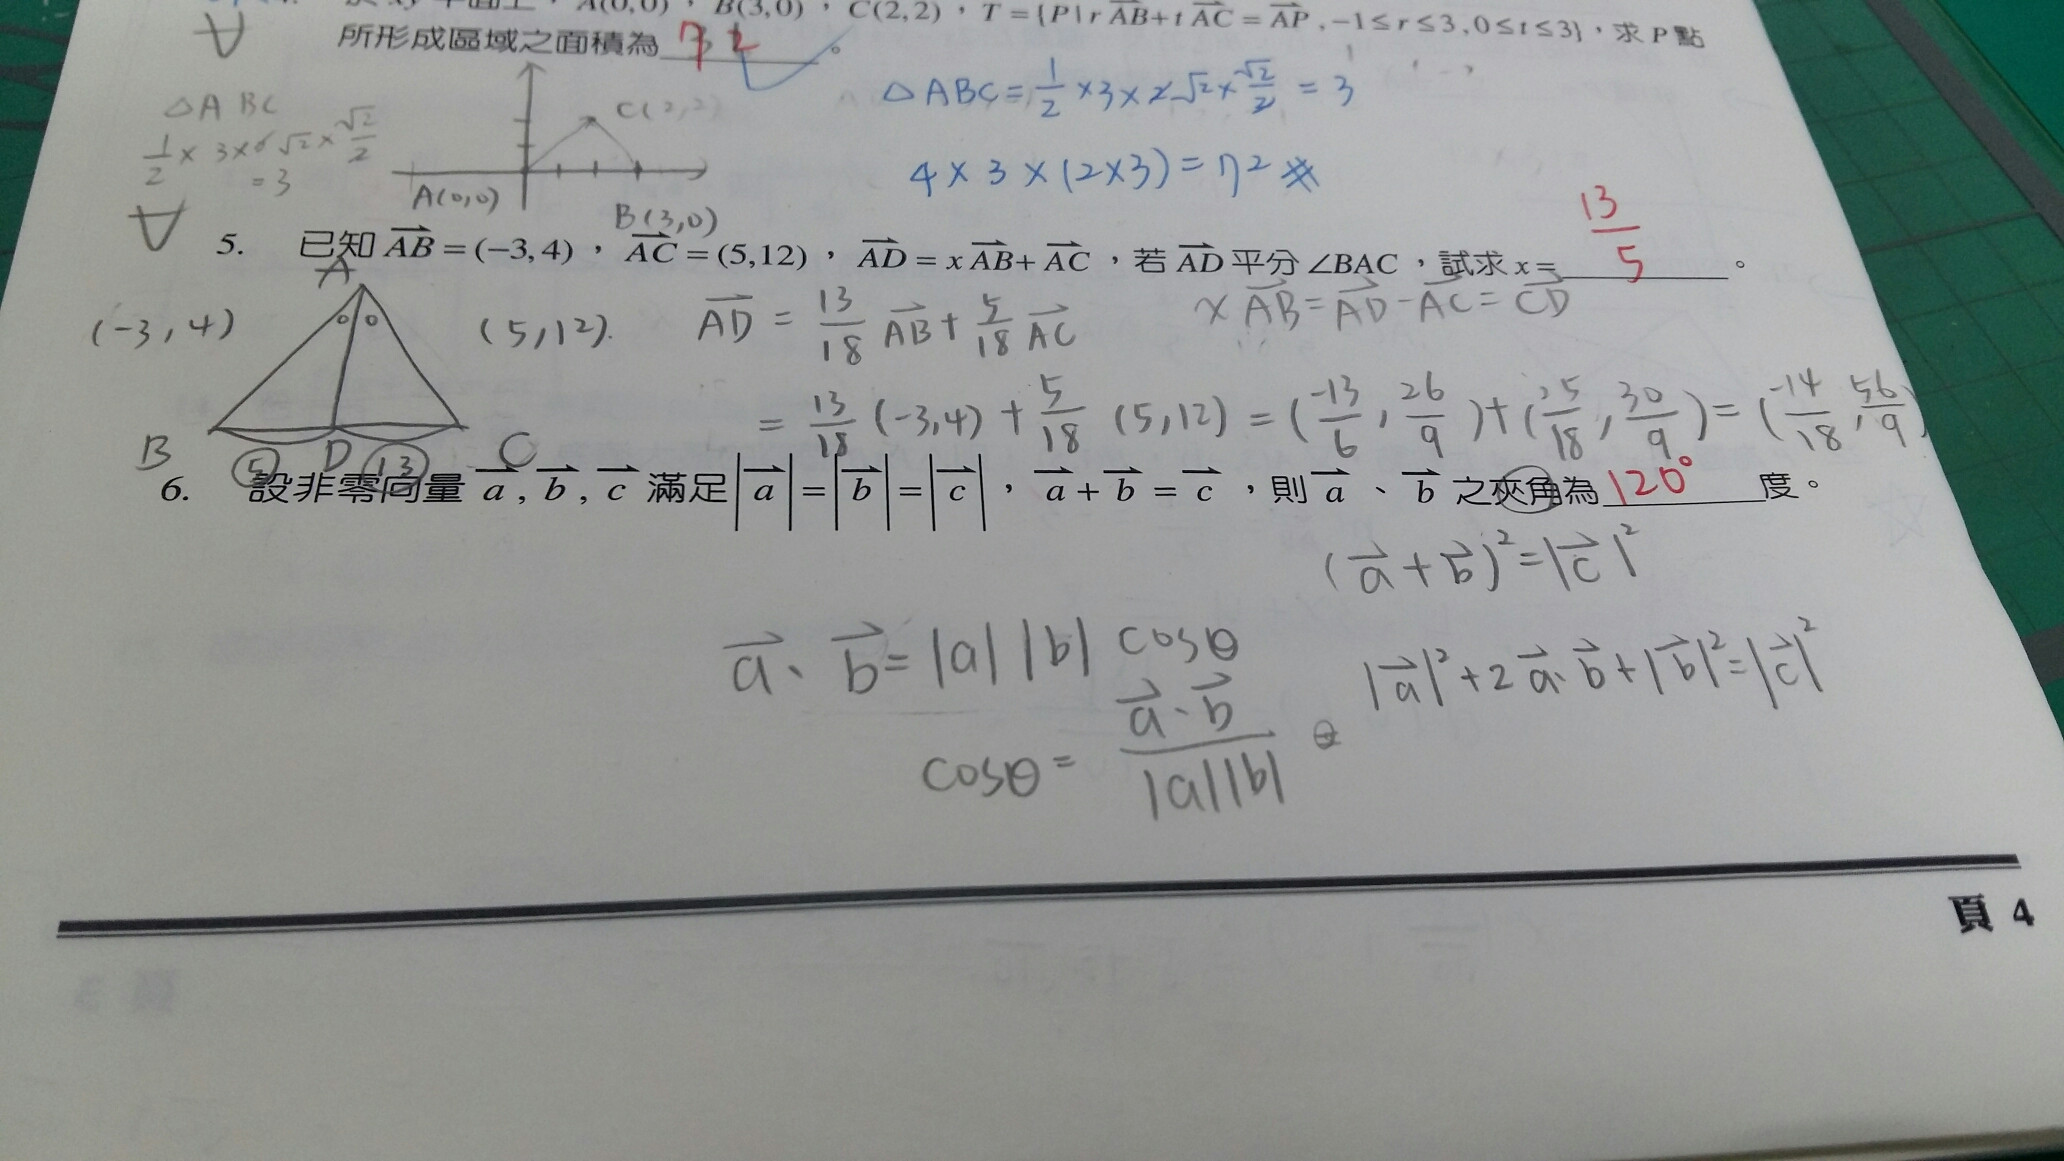 平面上，A(0,0)，B(3,0)，C(2,2)，T={P|r AB+t AC=AP,-1≤r≤3,0≤t≤3}，求P點
所形成區域之面積為 72 。
△ABC
1/2×3×6√2×√2/2
=3
C(2,2)
A(0,0)
B(3,0)
△ABC=1/2×3×2√2×√2/2=3
4×3×(2×3)=72#
5. 已知AB=(−3,4)，AC=(5,12)，AD=xAB+AC，若AD平分∠BAC，試求x= 13/5 。
A
(-3,4)
(5,12).
B
5
D
13
C
AD=13/18 AB+5/18 AC
xAB=AD-AC=CD
=13/18(-3,4)+5/18(5,12)=(-13/6,26/9)+(25/18,30/9)=(-14/18,56/9)
6. 設非零向量a,b,c滿足|a|=|b|=|c|，a+b=c，則a、b之夾角為 120° 度。
(a+b)²=|c|²
a·b=|a||b|cosθ
|a|²+2a·b+|b|²=|c|²
cosθ=a·b/|a||b|
頁 4